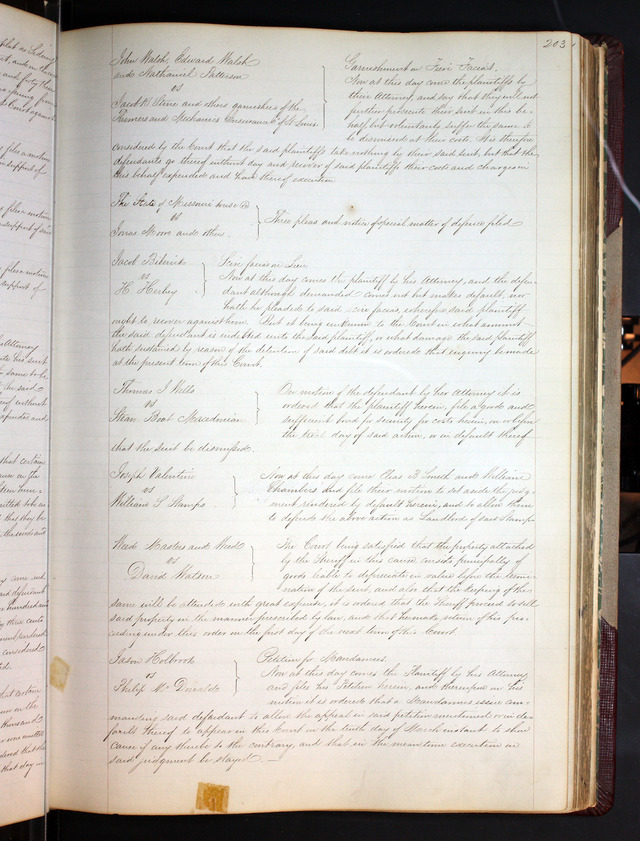 203
John Walsh, Edward Walsh
and Nathaniel Patterson
vs
Jacob B Stine and others garnishees of the
Farmers and Mechanics Insurance Co of St Louis
Garnishment on Fieri Facias.
Now at this day come the plaintiffs by
their Attorney, and say that they will not
further prosecute their suit in this be
half, but voluntarily suffer the same to
be dismissed at their costs. It is therefore
considered by the Court that the said plaintiffs take nothing by their said suit, but that the
defendants go thereof without day and recover of said plaintiffs their costs and charges in
this behalf expended and have thereof execution
The State of Missouri to use
vs
Jonas Moore and other
Three pleas and notice of special matter of defence filed
Jacob
vs
H
Scire facias on Lien
Now at this day comes the plaintiff by his Attorney, and the defen-
dant although demanded comes not but makes default, nor
hath he pleaded to said scire facias, wherefore said plaintiff
ought to recover against him. But it being unknown to the Court in what amount
the said defendant is indebted unto the said plaintiff, or what damage the said plaintiff
hath sustained by reason of the detention of said debt it is ordered that enquiry be made
at the present term of this Court.
Thomas J Wells
vs
Steam Boat Macedonian
On motion of the defendant by her Attorney it is
ordered that the plaintiff herein, file a good and
sufficient bond for security for costs herein, on or before
the trial day of said action, or in default thereof
that the suit be dismissed.
Joseph Valentine
vs
William S Stamps
Now at this day come B Smith and William
Chambers and file their motion to set aside the judg-
ment rendered by default herein, and to allow them
to defend the above action as Landlord of said Stamps
and
vs
David Watson
The Court being satisfied that the property attached
by the Sheriff in this cause consists principally of
goods liable to depreciate in value before the termi-
nation of the suit, and also that the keeping of the
same will be attended with great expense, it is ordered that the Sheriff proceed to sell
said property in the manner prescribed by law, and that he make return of his pro-
ceeding under this order on the first day of the next term of this Court
Jason Holbrook
vs
Philip McDonald
Petition for Mandamus.
Now at this day comes the Plaintiff by his Attorney
and files his Petition herein, and thereupon on his
motion it is ordered that a Mandamus issue com-
manding said defendant to allow the appeal in said petition mentioned or in de-
fault thereof to appear in this Court on the tenth day of March instant to show
cause if any there be to the contrary, and that in the meantime execution on
said judgment be stayed.